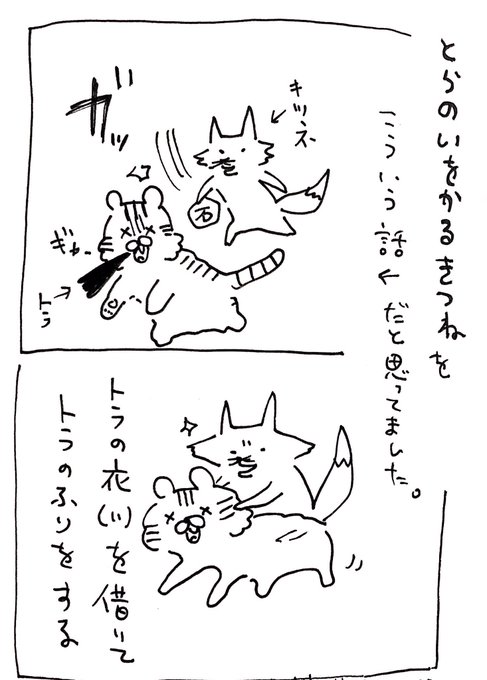 とらのいをかるきつねを
こういう話←だと思ってました。
ガッ
キツネ
石
ぎゃー
トラ
トラの衣(川)を借りて
トラのふりをする